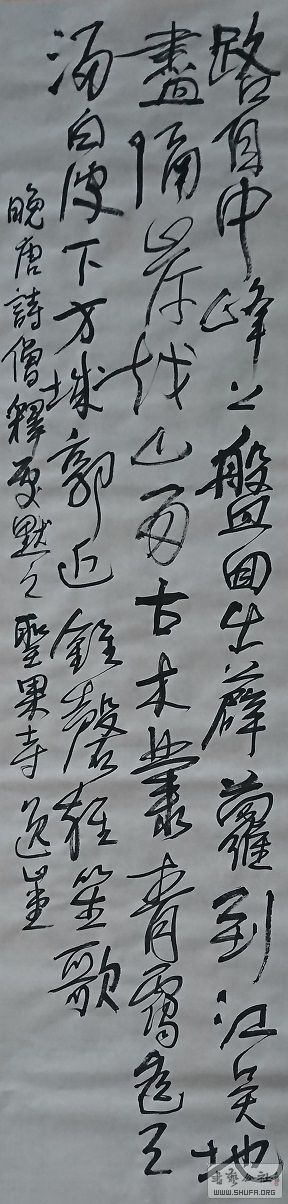 路自中峰上盤回出薜蘿到江吳地
盡隔岸越山多古木叢青靄遥天
浴白波下方城郭近鐘磬雜笙歌
晚唐詩僧釋處默之聖果寺
書藝公社
WWW.SHUFA.ORG